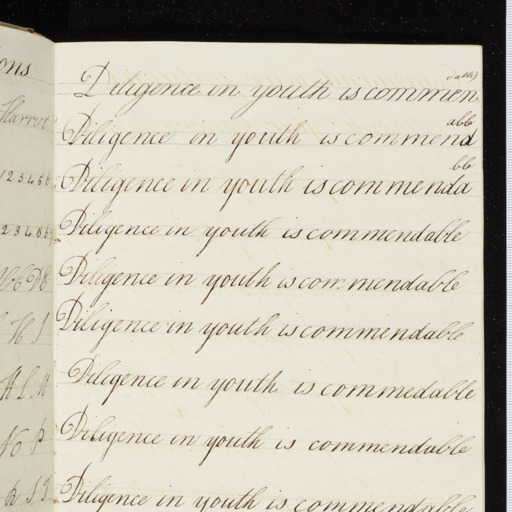 ons
Harriet
123456
23456
H I
K L M
N O P
R S T
Diligence in youth is commen dable
Diligence in youth is commend able
Diligence in youth is commenda ble
Diligence in youth is commendable
Diligence in youth is commendable
Diligence in youth is commendable
Diligence in youth is commedable
Diligence in youth is commendable
Diligence in youth is commendable